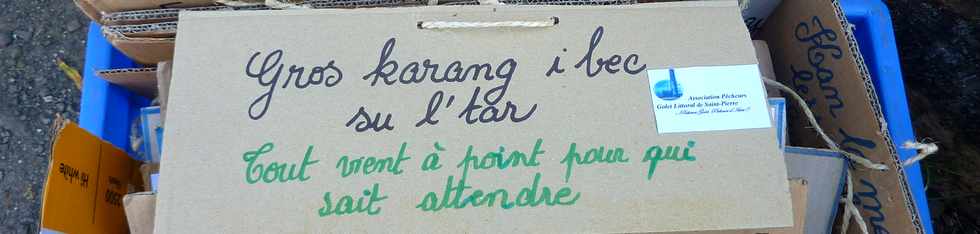 Gros karang i bec
su l'tar
Tout vent à point pour qui
sait attendre
Association Pêcheurs
Galet Littoral de Saint-Pierre
Hi white
3500